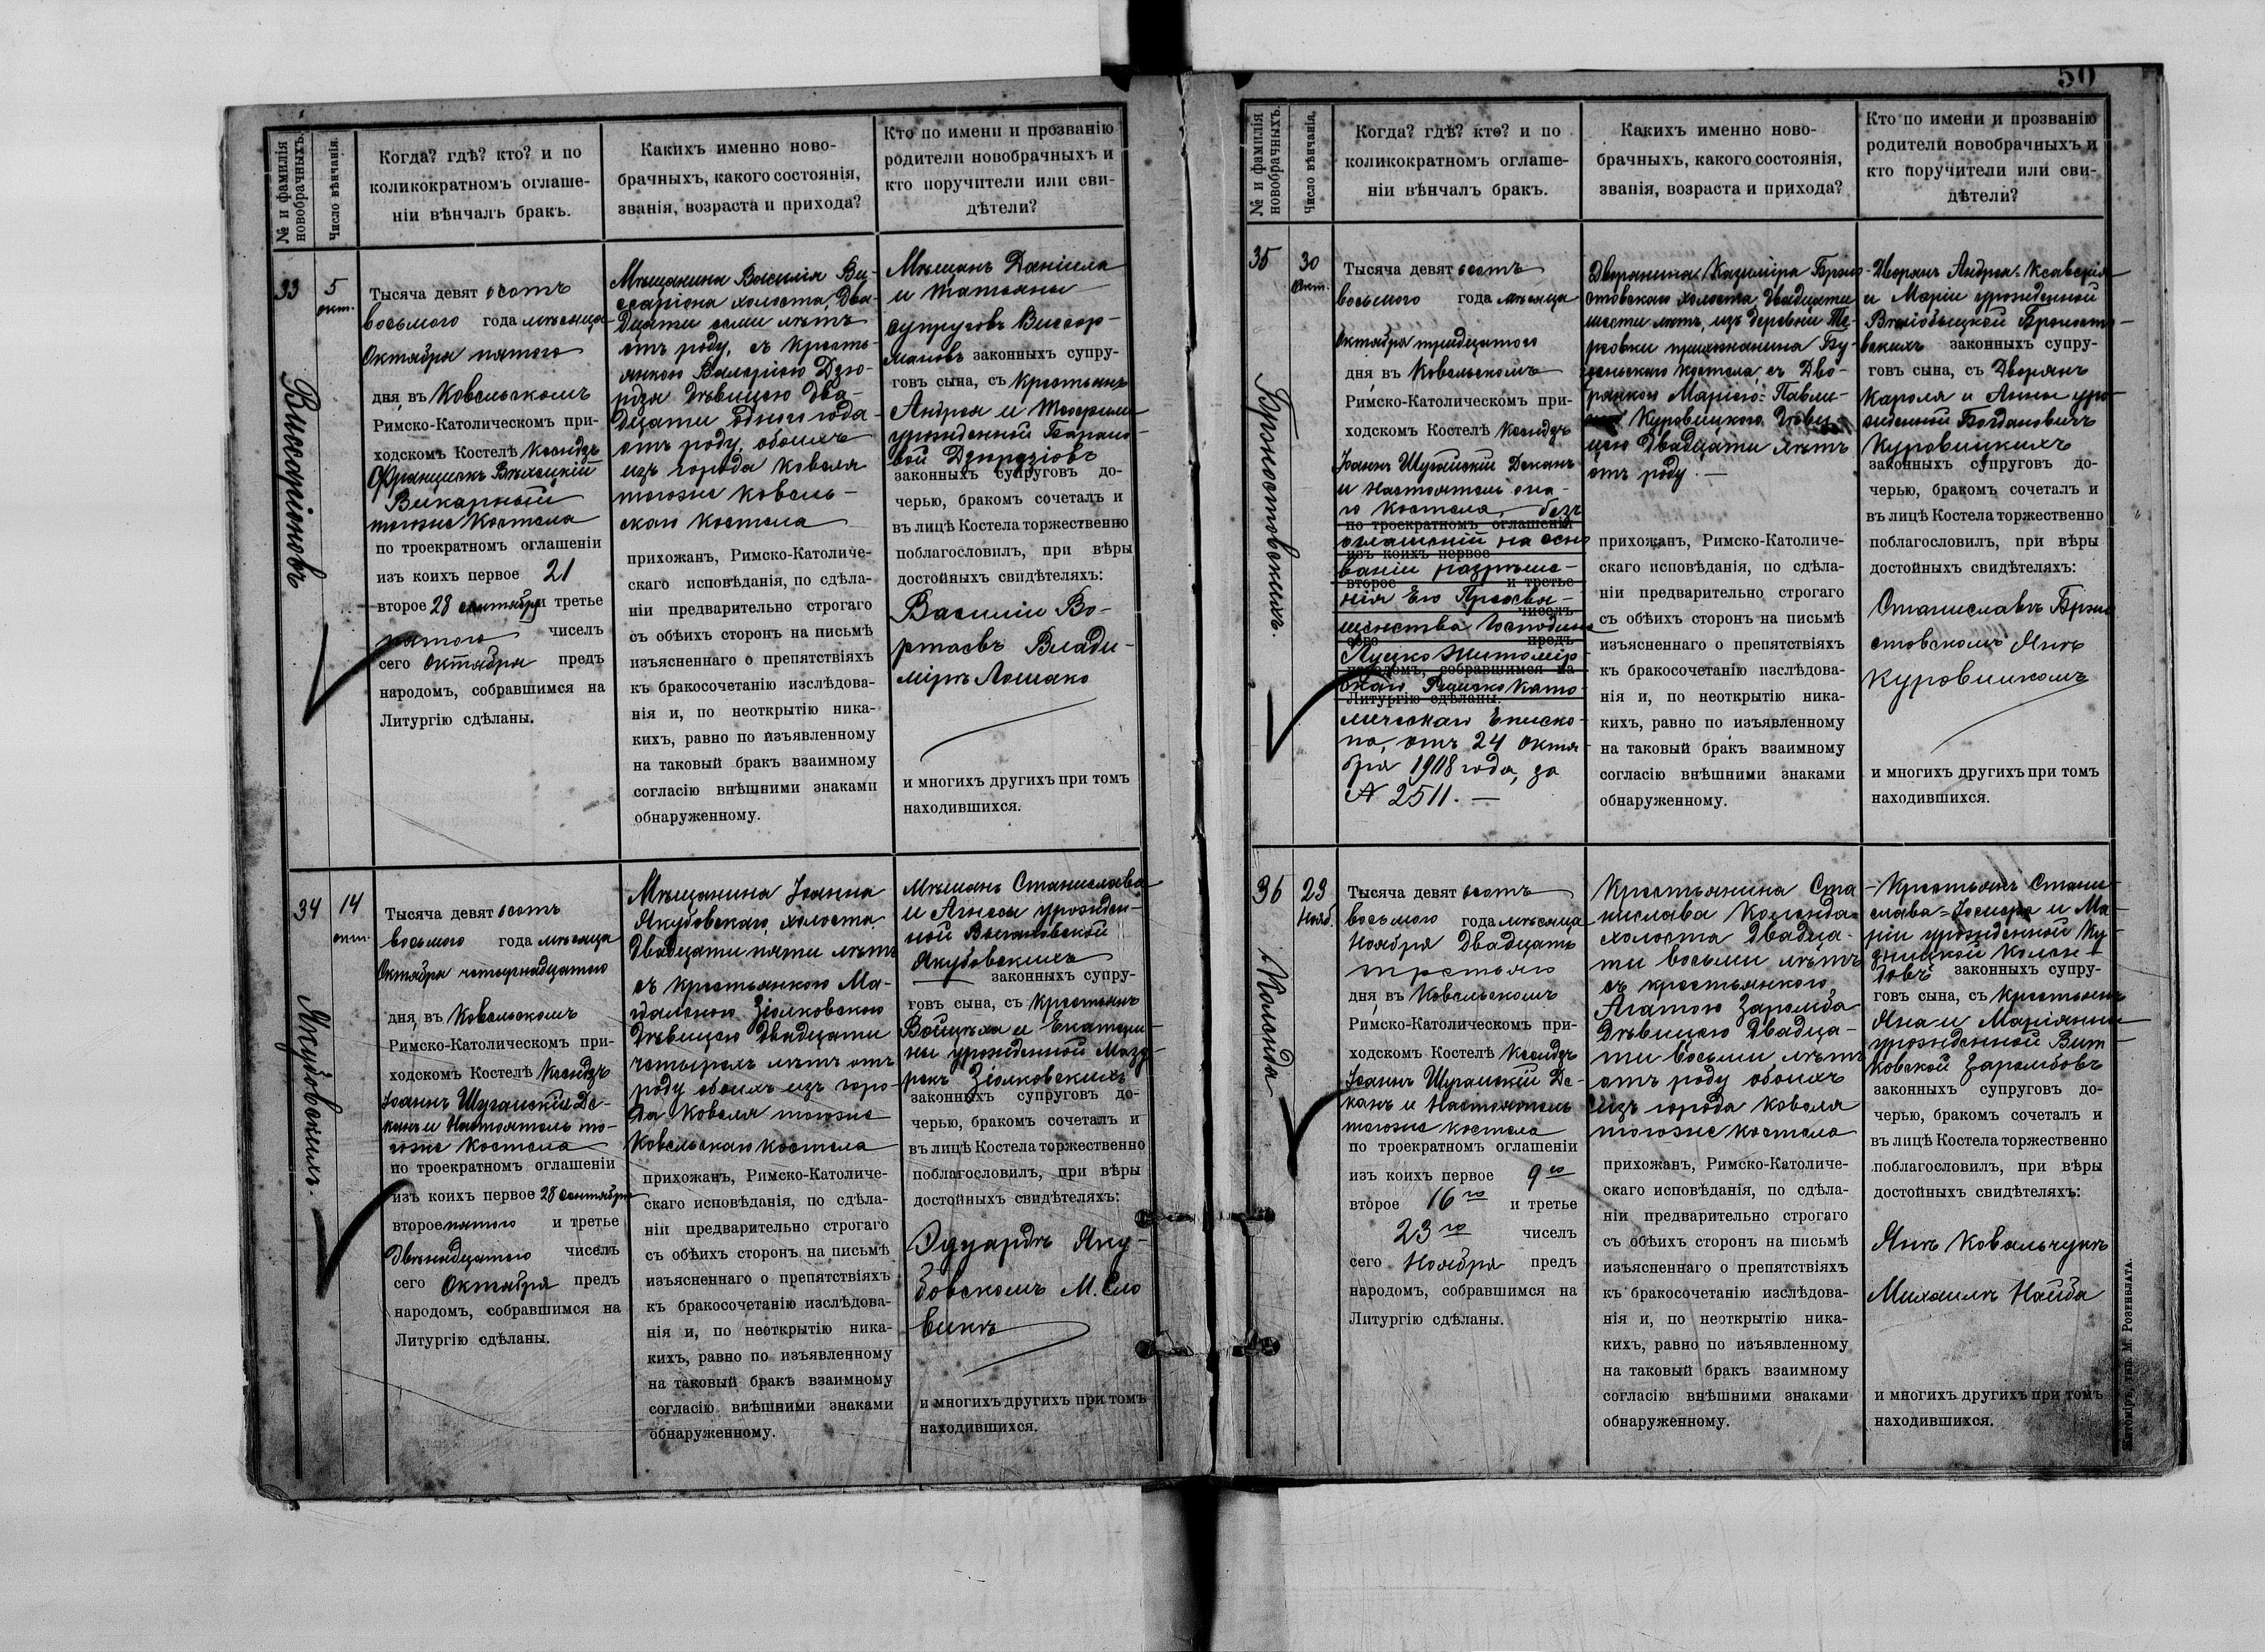 № и фамилія новобрачныхъ.
Число вѣнчанія.
Когда? гдѣ? кто? и по
коликократномъ оглаше-
ніи вѣнчалъ бракъ.
Какихъ именно ново-
брачныхъ, какого состоянія,
званія, возраста и прихода?
Кто по имени и прозванію
родители новобрачныхъ и
кто поручители или сви-
дѣтели?
33
Виссаріоновъ
5
окт.
Тысяча девят сотъ
восьмого года мѣсяца
Октября пятого
дня, въ Ковельскомъ
Римско-Католическомъ при-
ходскомъ Костелѣ Ксендзъ
Францискъ
Викарный
тогоже Костела
по троекратномъ оглашеніи
изъ коихъ первое 21
второе 28 сентября и третье
пятого чиселъ
сего Октября предъ
народомъ, собравшимся на
Литургію сдѣланы.
Мѣщанина Василія Ви-
ссаріона холоста, два-
дцати семи лѣтъ
отъ роду, съ кресть-
янкою Валеріею Дзю-
рдзя дѣвицею два-
дцати одного года
отъ роду, обоихъ
изъ города Ковеля
тогоже Ковель-
скаго Костела
прихожанъ, Римско-Католиче-
скаго исповѣданія, по сдѣла-
ніи предварительно строгаго
съ обѣихъ сторонъ на письмѣ
изъясненнаго о препятствіяхъ
къ бракосочетанію изслѣдова-
нія и, по неоткрытію ника-
кихъ, равно по изъявленному
на таковый бракъ взаимному
согласію внѣшними знаками
обнаруженному.
Мѣщанъ Даніила
и Татьяны
супруговъ Виссар-
законныхъ супру-
говъ сына, съ Крестьянъ
Андрея и Теофили
урожденной Барано-
вой Дзюрдзіовъ
законныхъ супруговъ до-
черью, бракомъ сочеталъ и
въ лицѣ Костела торжественно
поблагословилъ, при вѣры
достойныхъ свидѣтеляхъ:
Василіи Во-
Влади-
мірѣ Лошако
и многихъ другихъ при томъ
находившихся.
34
Якубовскихъ.
14
окт.
Тысяча девят сотъ
восьмого года мѣсяца
Октября четырнадцатого
дня, въ Ковельскомъ
Римско-Католическомъ при-
ходскомъ Костелѣ Ксендзъ
Іоаннъ Шугайскій Де-
канъ и Настоятель то-
гоже Костела
по троекратномъ оглашеніи
изъ коихъ первое 28 сентября
второе пятого и третье
двѣнадцатого чиселъ
сего Октября предъ
народомъ, собравшимся на
Литургію сдѣланы.
Мѣщанина Іоанна
Якубовскаго, холоста
двадцати пяти лѣтъ
съ крестьянкою Ма-
гдаленою Зіолковскою
дѣвицею двадцати
четырехъ лѣтъ отъ
роду обоихъ изъ горо-
да Ковеля тогоже
Ковельскаго Костела
прихожанъ, Римско-Католиче-
скаго исповѣданія, по сдѣла-
ніи предварительно строгаго
съ обѣихъ сторонъ на письмѣ
изъясненнаго о препятствіяхъ
къ бракосочетанію изслѣдова-
нія и, по неоткрытію ника-
кихъ, равно по изъявленному
на таковый бракъ взаимному
согласію внѣшними знаками
обнаруженному.
Мѣщанъ Станислава
и Агнесы урожден-
ной
Якубовскихъ
законныхъ супру-
говъ сына, съ Крестьянъ
Войцѣха и Екатери-
ны урожденной Мазу-
рекъ Зіолковскихъ
законныхъ супруговъ до-
черью, бракомъ сочеталъ и
въ лицѣ Костела торжественно
поблагословилъ, при вѣры
достойныхъ свидѣтеляхъ:
Эдуардѣ Яку-
бовскомъ М. Сло
викѣ
и многихъ другихъ при томъ
находившихся.
50
№ и фамилія новобрачныхъ.
Число вѣнчанія.
Когда? гдѣ? кто? и по
коликократномъ оглаше-
ніи вѣнчалъ бракъ.
Какихъ именно ново-
брачныхъ, какого состоянія,
званія, возраста и прихода?
Кто по имени и прозванію
родители новобрачныхъ и
кто поручители или сви-
дѣтели?
35
Бржостовскихъ.
30
Окт.
Тысяча девят сотъ
восьмого года мѣсяца
Октября тридцатого
дня, въ Ковельскомъ
Римско-Католическомъ при-
ходскомъ Костелѣ Ксендзъ
Іоаннъ Шугайскій Деканъ
и Настоятель она-
го Костела, безъ
по троекратномъ оглашеніи
оглашеній на осно
изъ коихъ первое
ваніи разрѣше-
второе и третье
нія Его Преосвя-
чиселъ
щенства Господина
сего предъ
Луцко Житомір-
народомъ, собравшимся на
скаго Римско Като-
Литургію сдѣланы.
лическаго Еписко-
па, отъ 24 октя
бря 1908 года, за
№ 2511.
Дворянина Казиміра Брж-
стовскаго холоста, двадцати
шести лѣтъ, изъ деревни
прихожанина
Костела, съ Дво-
рянкою Маріею-Павли-
Куровицкою дѣви
цею двадцати лѣтъ
отъ роду. —
прихожанъ, Римско-Католиче-
скаго исповѣданія, по сдѣла-
ніи предварительно строгаго
съ обѣихъ сторонъ на письмѣ
изъясненнаго о препятствіяхъ
къ бракосочетанію изслѣдова-
нія и, по неоткрытію ника-
кихъ, равно по изъявленному
на таковый бракъ взаимному
согласію внѣшними знаками
обнаруженному.
Дворянъ Андрея-Ксаверія
и Маріи урожденной
Бржосто-
вскихъ законныхъ супру-
говъ сына, съ Дворянъ
Кароля и Анны уро-
жденной Богдановичъ
Куровицкихъ
законныхъ супруговъ до-
черью, бракомъ сочеталъ и
въ лицѣ Костела торжественно
поблагословилъ, при вѣры
достойныхъ свидѣтеляхъ:
Станиславѣ Бржо
стовскомъ Янѣ
Куровицкомъ
и многихъ другихъ при томъ
находившихся.
36
Колонда
23
Нояб.
Тысяча девят сотъ
восьмого года мѣсяца
Ноября двадцать
третьяго
дня, въ Ковельскомъ
Римско-Католическомъ при-
ходскомъ Костелѣ Ксендзъ
Іоаннъ Шугайскій Де-
канъ и Настоятель
тогоже Костела
по троекратномъ оглашеніи
изъ коихъ первое 9го
второе 16го и третье
23го чиселъ
сего Ноября предъ
народомъ, собравшимся на
Литургію сдѣланы.
Крестьянина Ста
нислава Колонда
холоста двадца-
ти восьми лѣтъ
съ крестьянкою
Агатою Заремба
дѣвицею двадца-
ти восьми лѣтъ
отъ роду обоихъ
изъ города Ковеля
тогоже Костела
прихожанъ, Римско-Католиче-
скаго исповѣданія, по сдѣла-
ніи предварительно строгаго
съ обѣихъ сторонъ на письмѣ
изъясненнаго о препятствіяхъ
къ бракосочетанію изслѣдова-
нія и, по неоткрытію ника-
кихъ, равно по изъявленному
на таковый бракъ взаимному
согласію внѣшними знаками
обнаруженному.
Крестьянъ Стани-
слава-Іосифа и Ма-
ріи урожденной Ку-
дницкой Колон-
довъ законныхъ супру-
говъ сына, съ Крестьянъ
Яна и Маріянны
урожденной Вит-
ковской Зарембовъ
законныхъ супруговъ до-
черью, бракомъ сочеталъ и
въ лицѣ Костела торжественно
поблагословилъ, при вѣры
достойныхъ свидѣтеляхъ:
Янѣ Ковальчукѣ
Михаилѣ Найда
и многихъ другихъ при томъ
находившихся.
Житоміръ, тип. М. Розенблата.